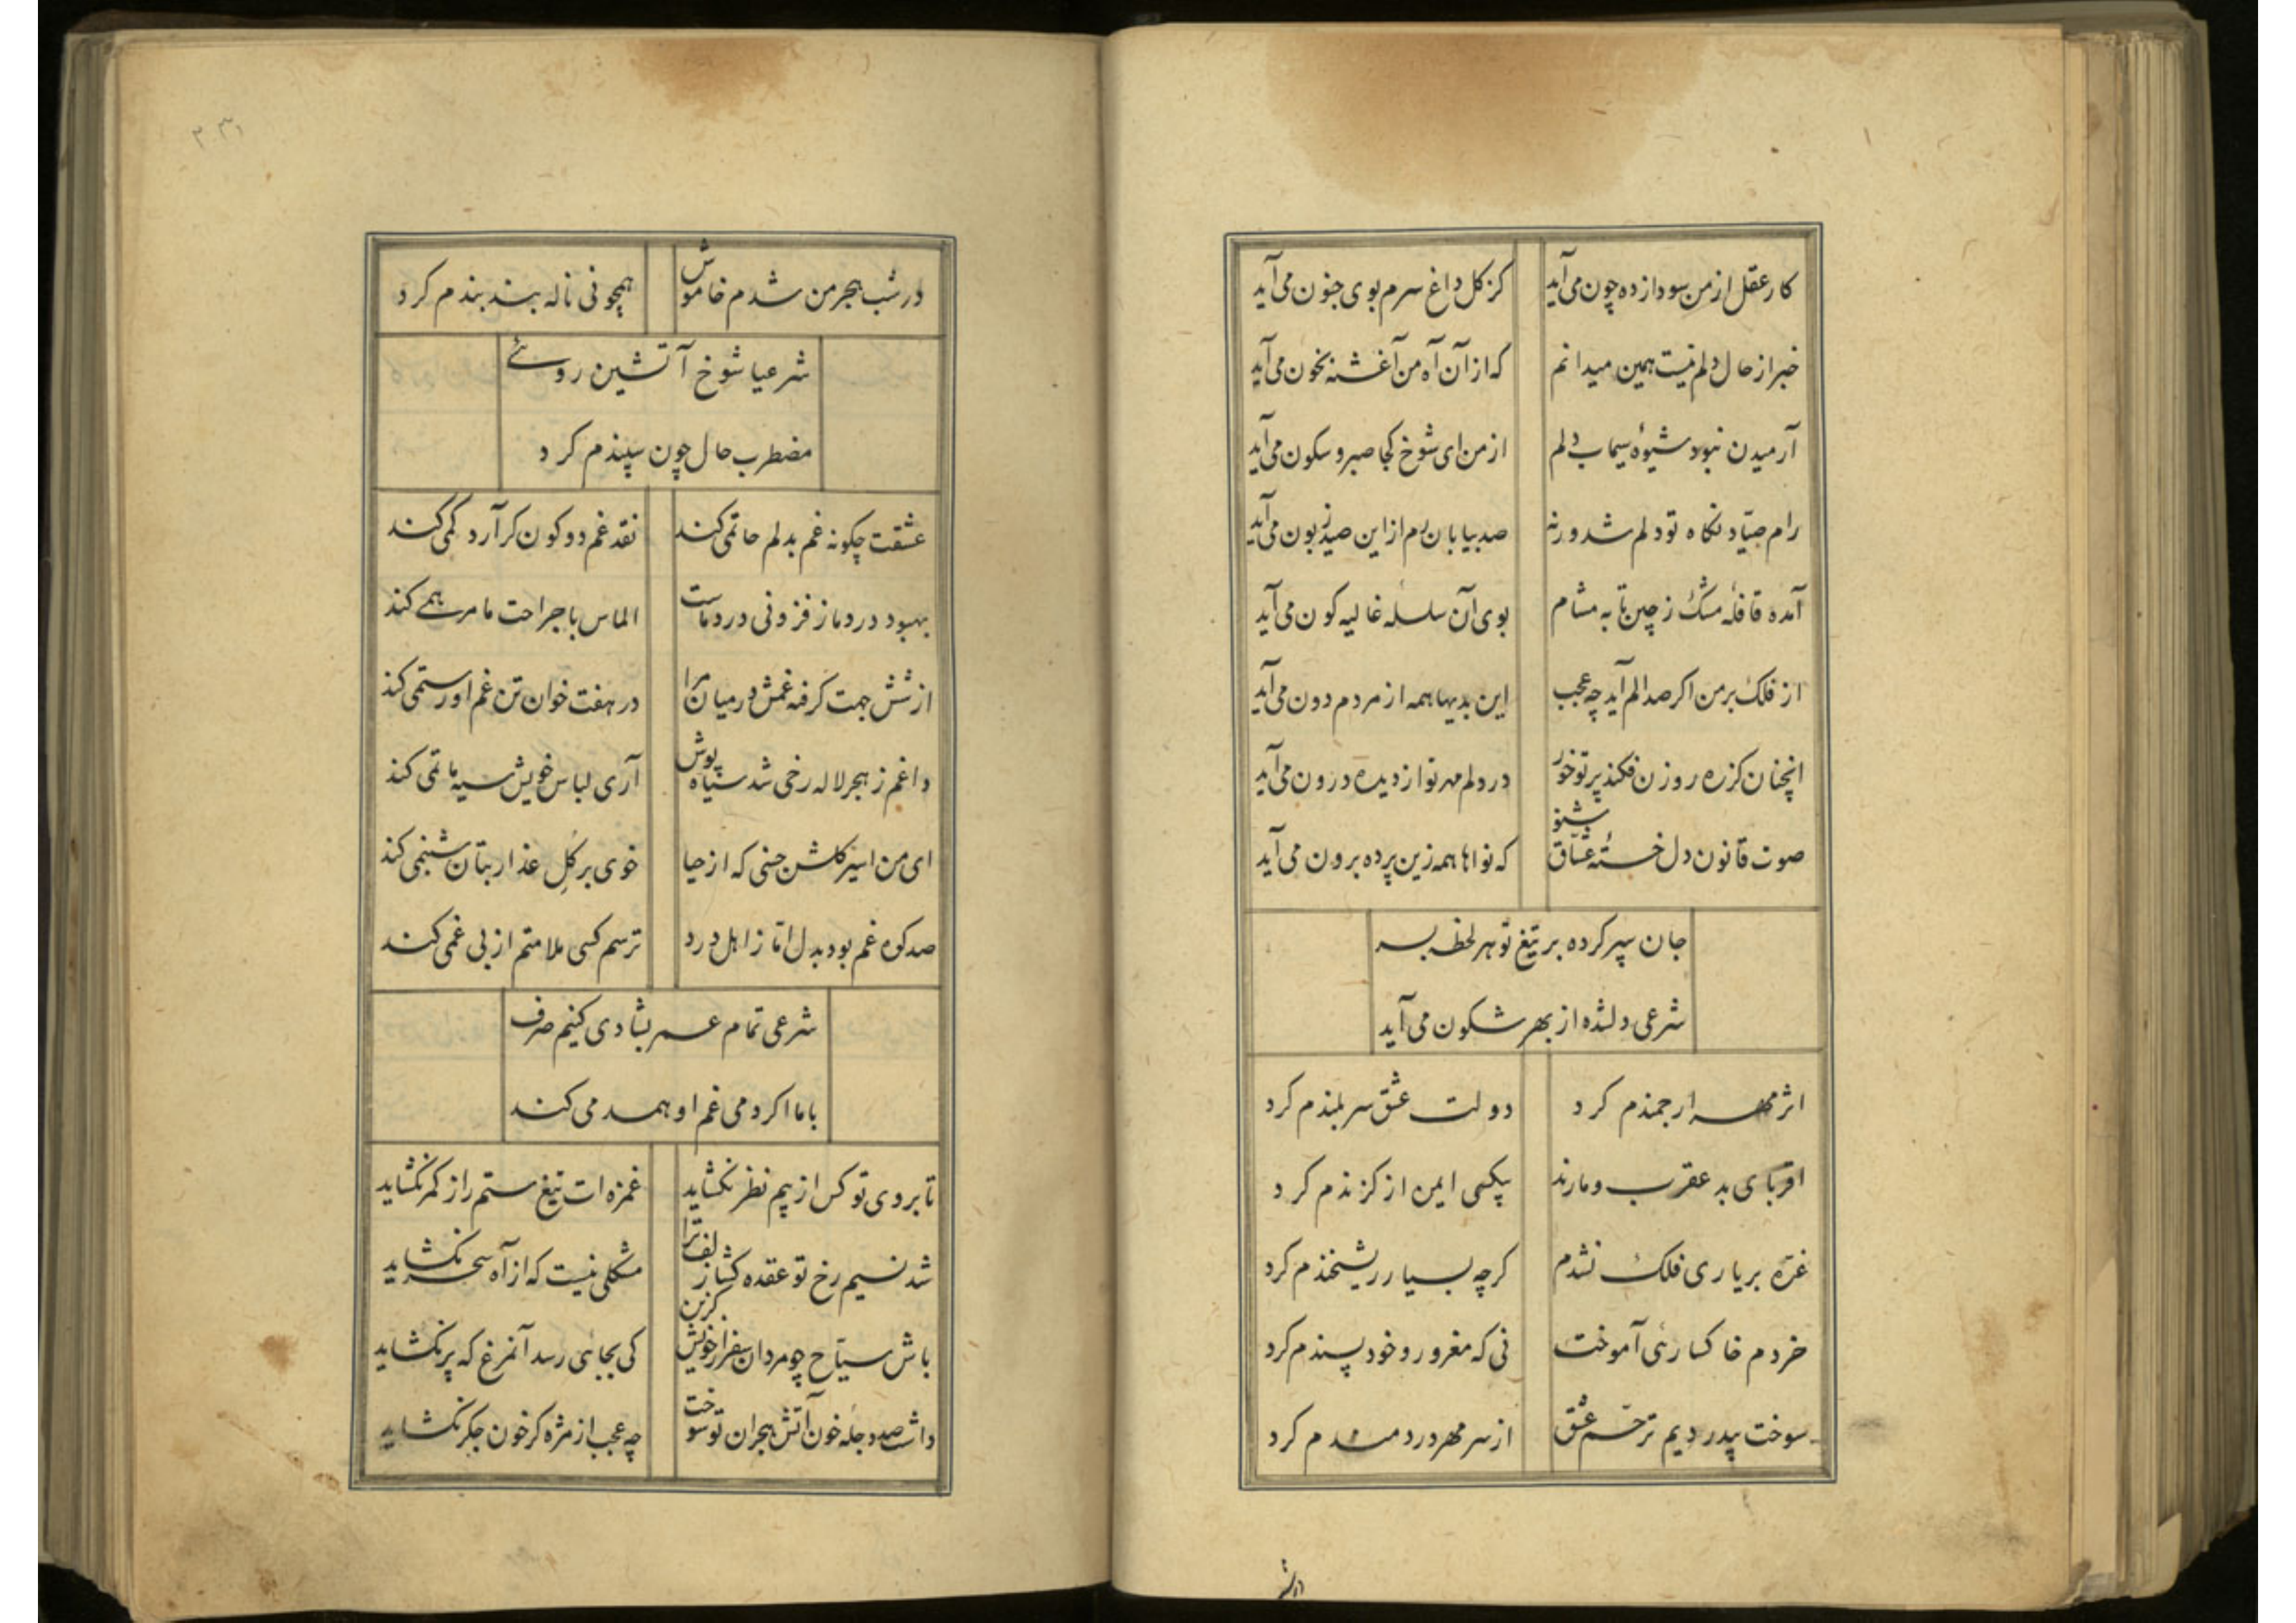 کار عقل از من سودازده چون می‌آید کز کل داغ سرم بوی جنون می‌آید
خبر از حال دلم نیست همین میدانم که از آن آه من آغشته بخون می‌آید
آرمیدن نبود شیوهٔ سیماب دلم از من ای شوخ کجا صبر و سکون می‌آید
رام صیّاد نکاه تو دلم شد ورنه صد بیابان رم از این صید زبون می‌آید
آمده قافلهٔ مشک ز چین تا به مشام بوی آن سلسلهٔ غالیه کون می‌آید
از فلک بر من اکر صد الم آید چه عجب این بدیها همه از مردم دون می‌آید
انچنان کز ره روزن فکند پرتو خور در دلم مهر تو از دیده درون می‌آید
صوت قانون دل خستهٔ عشّاق شنو که نواها همه زین پرده برون می‌آید
جان سپر کرده بر تیغ تو هر لحظه بسر
شرعی دلشده از بهر شکون می‌آید
اثر مهر ارجمندم کرد دولت عشق سربلندم کرد
اقربای بد عقرب و مارند بیکسی ایمن از کزندم کرد
غرّه بر یاری فلک نشدم کرچه بسیار ریشخندم کرد
خردم خاکساری آموخت نی که مغرور و خود پسندم کرد
سوخت بیدردیم ترحّم عشق از سر مهر دردمندم کرد
در شب
در شب هجر من شدم خاموش همچو نی ناله بند بندم کرد
شرعیا شوخ آتشین روئے
مضطرب حال چون سپندم کرد
عشقت چکونه غم بدلم حاتمی کند نقد غم دو کون کر آرد کمی کند
بهبود درد ما ز فزونی درد ماست الماس با جراحت ما مرهمے کند
از شش جهت کرفته غمش در میان مرا در هفت خوان تن غم او رستمی کند
داغم ز هجر لاله رخی شد سیاه پوش آری لباس خویش سیه ماتمی کند
ای من اسیر کلشن حسنی که از حیا خوی بر کلِ عذار بتان شبنمی کند
صد کوه غم بود بدل امّا ز اهل درد ترسم کسی ملامتم از بی غمی کند
شرعی تمام عمر بشادی کنیم صرف
با ما اکر دمی غم او همدمی کند
تا بروی تو کس از بیم نظر نکشاید غمزه ات تیغ ستم را ز کمر نکشاید
شد نسیم رخ تو عقده کشا زلف ترا مشکلی نیست که از آه سحر نکشاید
باش سیّاح چو مردان سفر از خویش کزین کی بجائی رسد آنمرغ که پر نکشاید
داشت صد دجله خون آتش هجران تو سوخت چه عجب از مژه کر خون جکر نکشاید